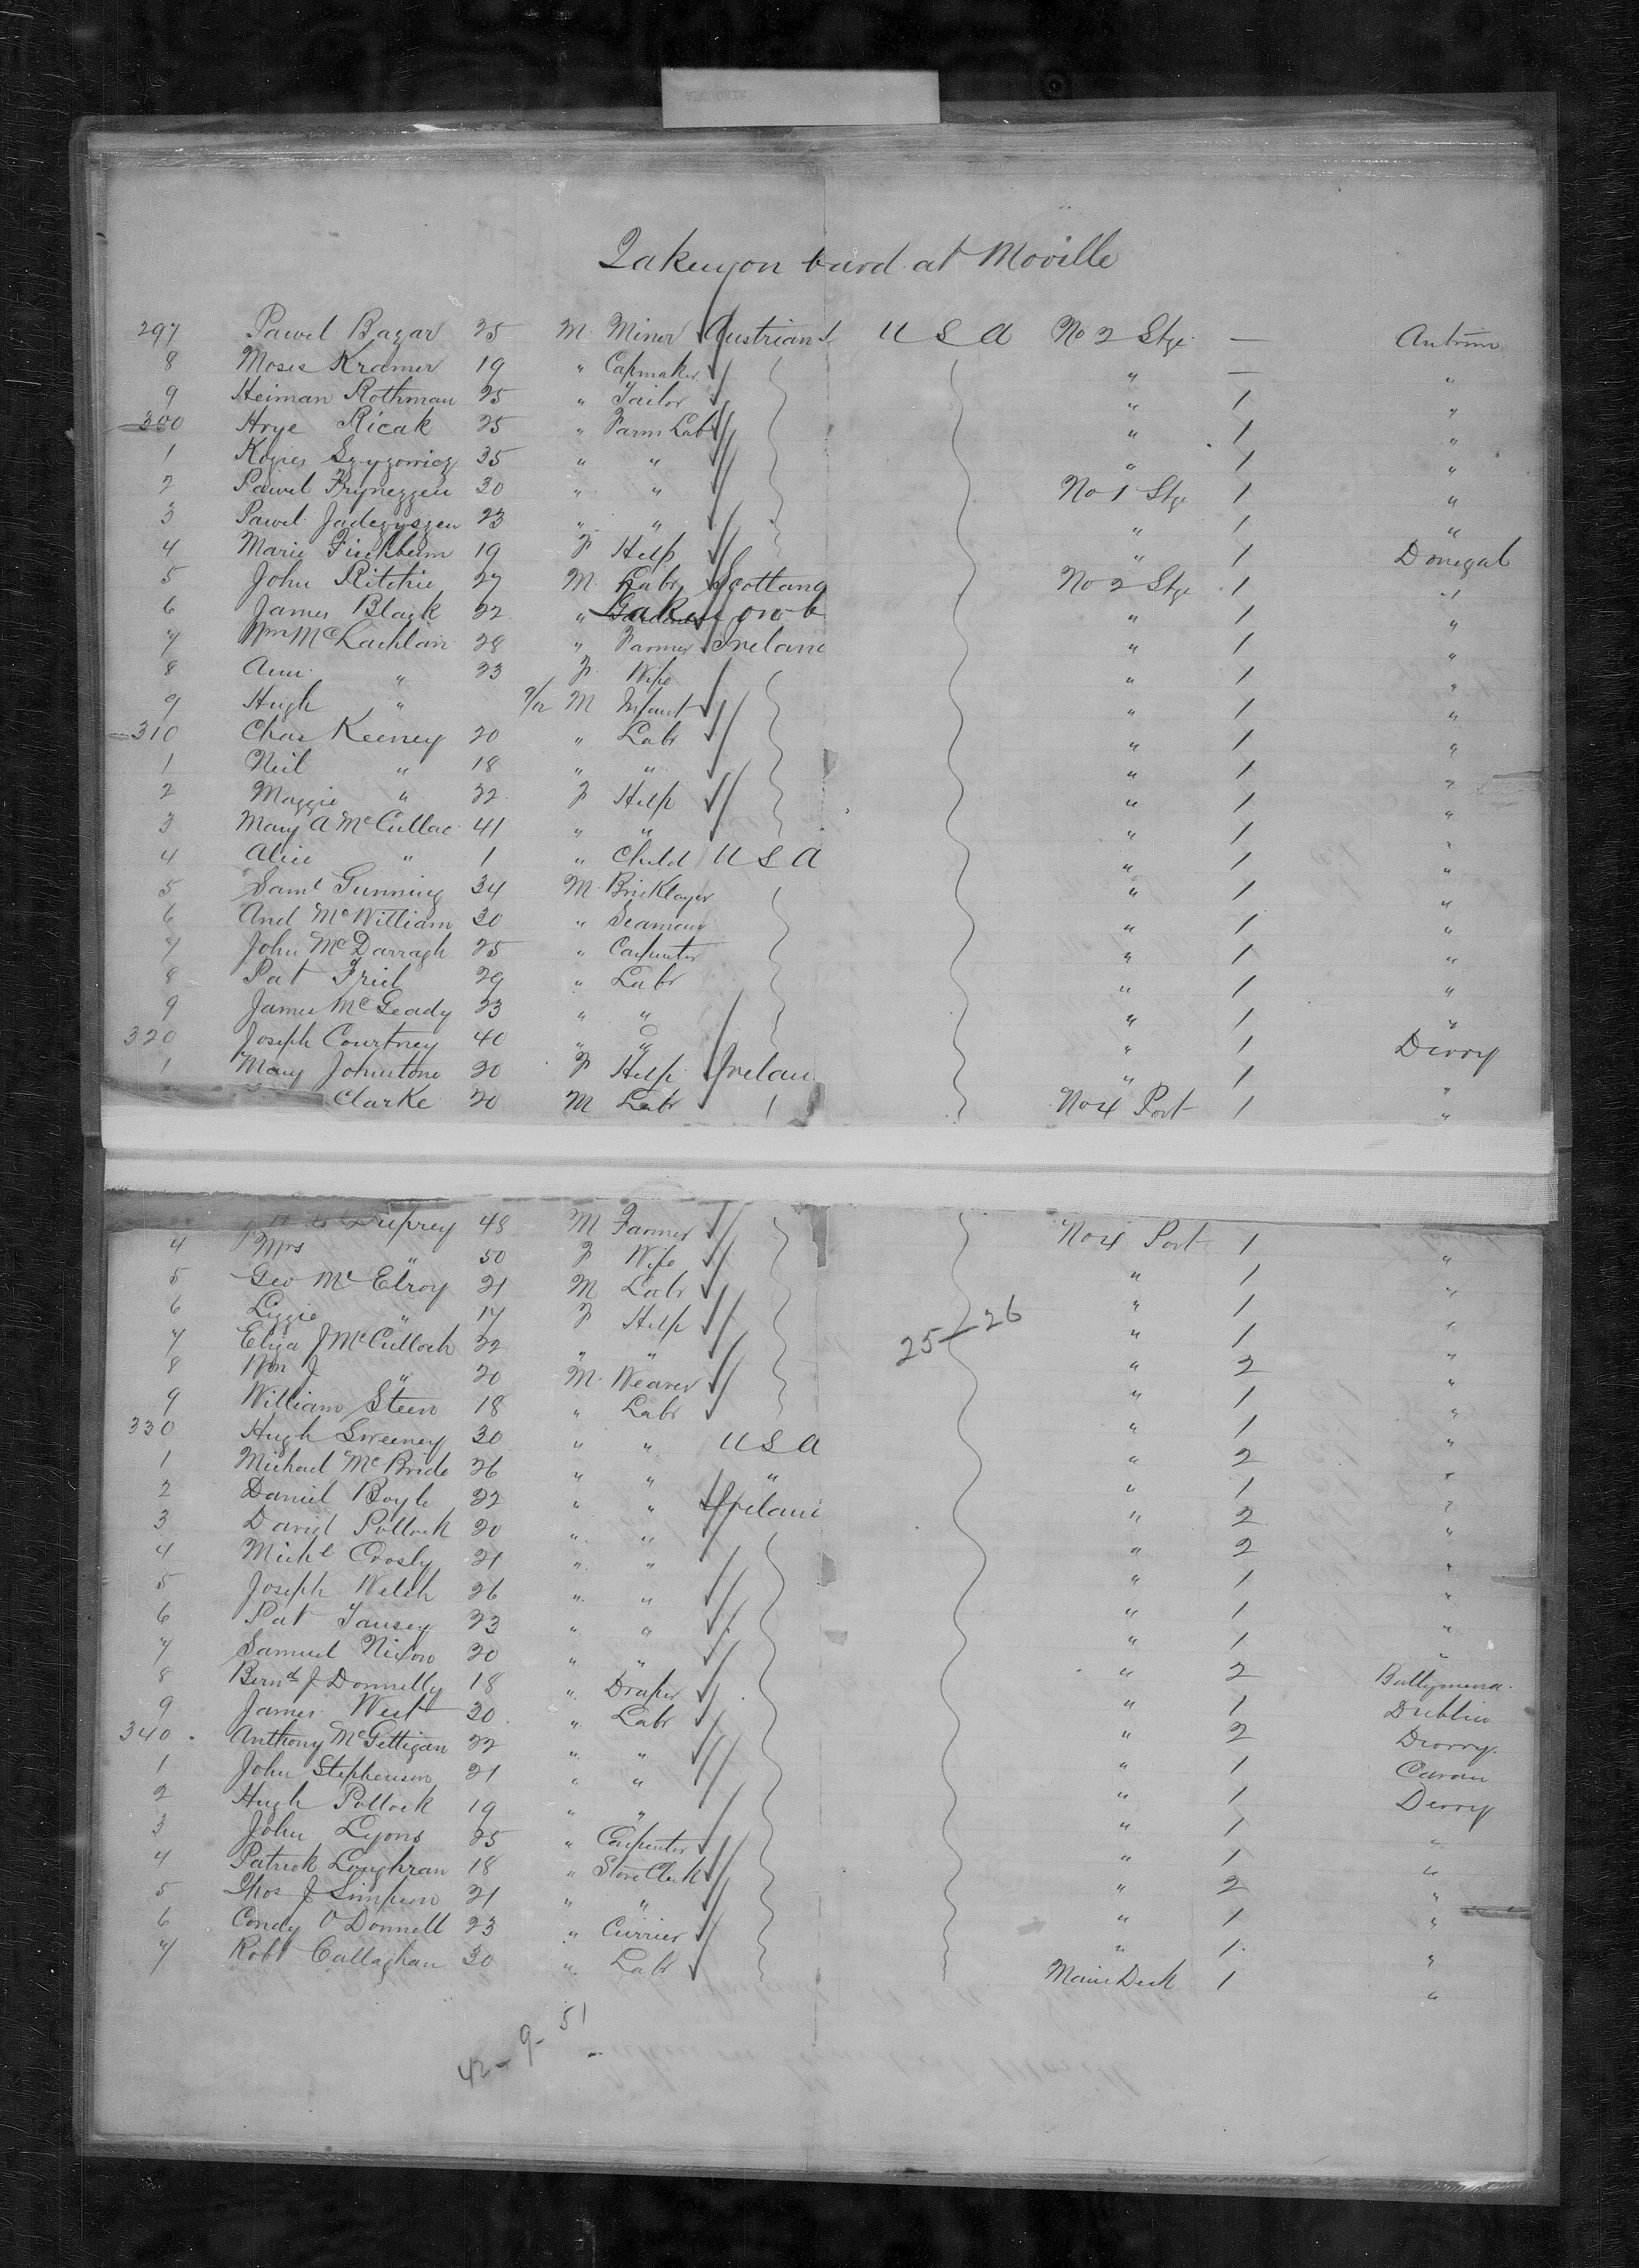 Taken on board at Moville
297 Pawel Bazar 25 M Miner Austrian U S A No 2 Stge — Antrim
8 Moses Kramer 19 " Capmaker " — "
9 Heiman Rothman 25 " Tailor " 1 "
300 Hrye Ricak 25 " Farm Labr " 1 "
1 35 " " " 1 "
2 Pawel 30 " " No 1 Stge 1 "
3 Pawel 23 " " " 1 "
4 Marie 19 F Help " 1 Donegal
5 John Ritchie 27 M Labr Scotland No 2 Stge 1 "
6 James Black 22 " " 1 "
7 Wm McLachlan 28 " Farmer Irelan " 1 "
8 Ann " 23 F Wife " 1 "
9 Hugh " 9/12 M Infant " 1 "
310 Chas Keeney 20 " Labr " 1 "
1 Neil " 18 " " " 1 "
2 Maggie " 22 F Help " 1 "
3 Mary A McCullac 41 " " " 1 "
4 Alice " 1 " Child U S A " 1 "
5 Saml Gunning 34 M Bricklayer " 1 "
6 And McWilliam 30 " Seaman " 1 "
7 John McDarragh 25 " Carpenter " 1 "
8 Pat Friel 29 " Labr " 1 "
9 James McGeady 23 " " " 1 "
320 Joseph Courtney 40 " " " 1 Derry
1 Mary Johnstone 20 F Help Irelan " 1 "
Clarke 20 M Labr 1 No 4 Port 1 "
Duprey 48 M Farmer No 4 Port 1 "
4 Mrs " 50 F Wife " 1 "
5 Geo McElroy 21 M Labr " 1 "
6 Lizzie " 17 F Help " 1 "
25-26
7 Eliza J McCulloch 22 " " " 2 "
8 Wm J " 20 M Weaver " 1 "
9 William Steen 18 " Labr " 1 "
330 Hugh Sweeney 30 " " U S A " 2 "
1 Michael McBride 26 " " " " 1 "
2 Daniel Boyle 22 " " Irelan " 2 "
3 David Pollock 20 " " " 2 "
4 Michl Crosly 21 " " " 1 "
5 Joseph Welsh 26 " " " 1 "
6 Pat Tansey 23 " " " 1 "
7 Samuel Nixon 20 " " " 2 Ballymena
8 Bernd J Donnelly 18 " Draper " 1 Dublin
9 James West 30 " Labr " 2 Derry
340 Anthony McGettigan 22 " " " 1 Cavan
1 John Stephenson 21 " " " 1 Derry
2 Hugh Pollock 19 " " " 1 "
3 John Lyons 25 " Carpenter " 1 "
4 Patrick Loughran 18 " Store Clerk " 2 "
5 Thos J Simpson 21 " " " 1 "
6 Condy O Donnell 23 " Currier " 1 "
7 Robt Callaghan 30 " Labr Main Deck 1 "
42-9-51